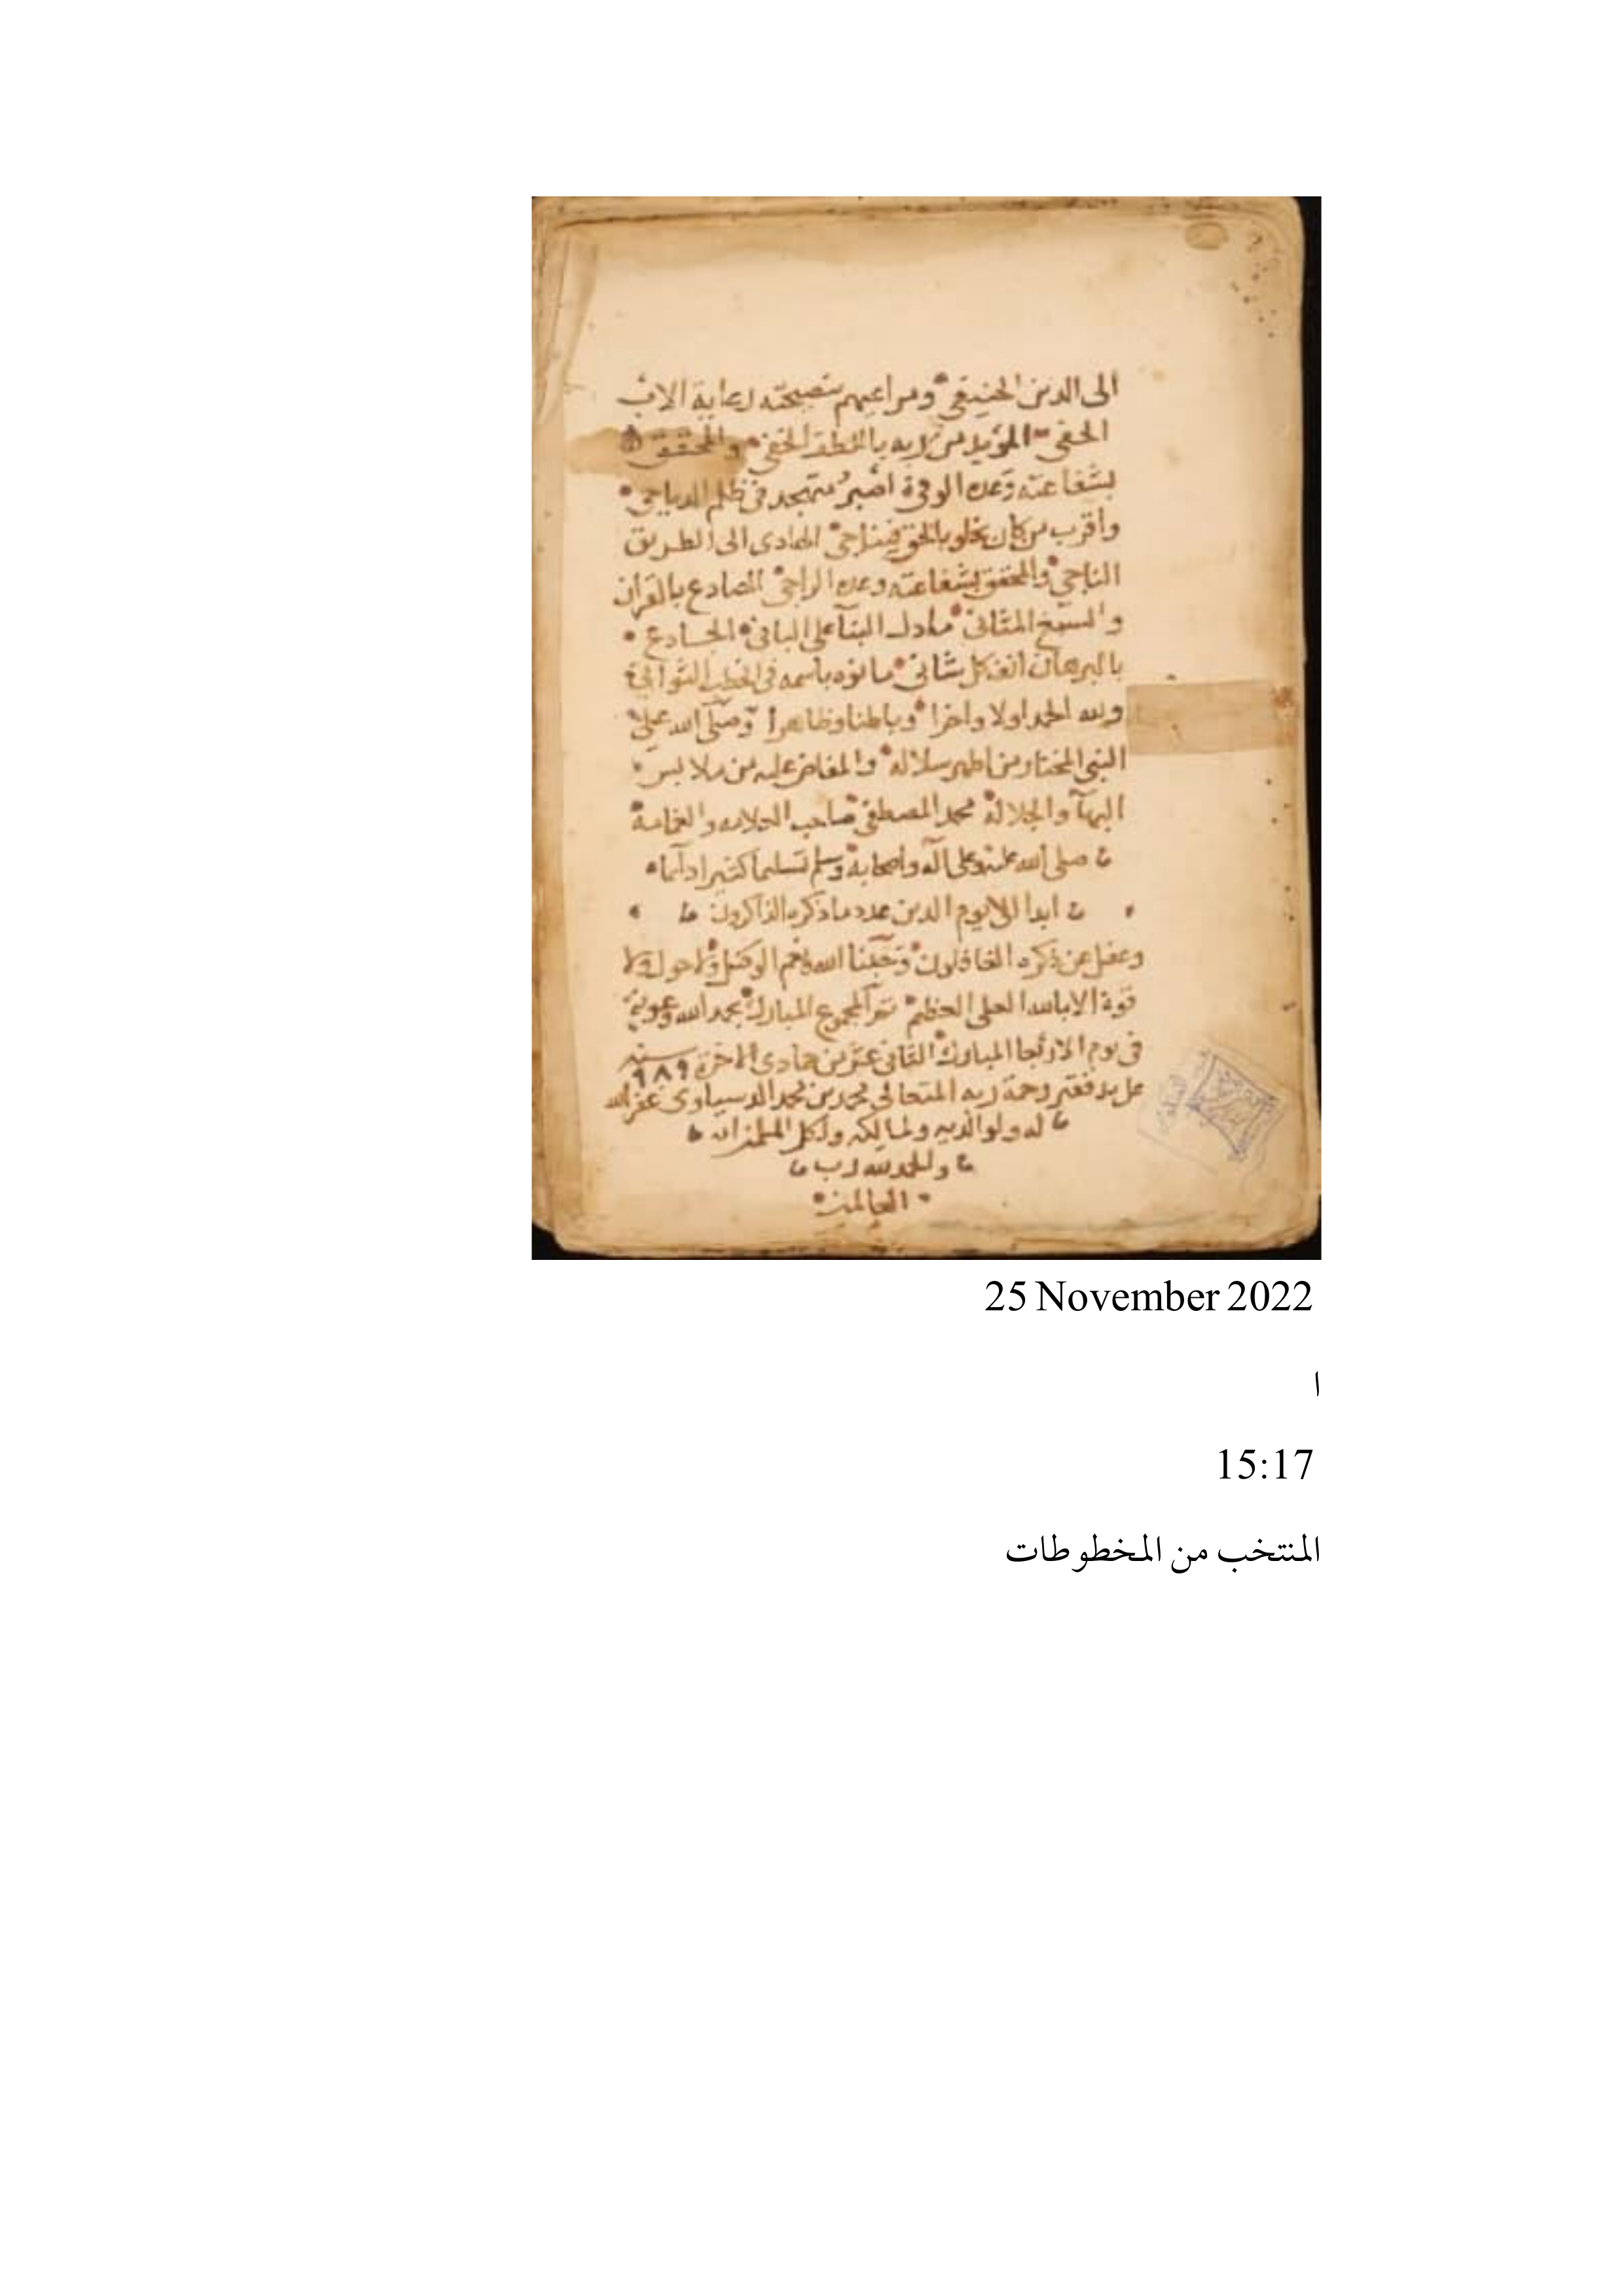 الى الدين الحنيفي ومراعيهم بنصيحته رعاية الاب
الحفي المؤيد من ربه باللطف الخفي والمحقق
بشفاعته وعده الوفي اصبر متهجد في ظلم الدياجي
واقرب من كان يخلو بالحق فيناجي الهادى الى الطريق
الناجي والمحقق بشفاعته وعده الراجي الصادع بالقران
والسبع المثاني البنآ على الباني
بالبرهان انف كل شاني ما نوه باسمه في الخطب
ولله الحمد اولا واخرا وباطنا وظاهرا وصلى الله على
النبي المختار من اطهر سلاله والمفاض عليه من ملابس
البهآ والجلالة محمد المصطفى صاحب العلامه والغمامة
صلى الله عليه وعلى آله واصحابه وسلم تسليما كثيرا دآيما
ابدا الى يوم الدين عدد ما ذكره الذاكرون
وغفل عن ذكره الغافلون وحسبنا الله ونعم الوكيل ولا حول ولا
قوة الا بالله العلى العظيم تم المجموع المبارك بحمد الله وعونه
في يوم الاربعا المبارك الثاني عشر من جمادى الاخرة سنه ٩٨٩
على يد فقير رحمة ربه المتعالي محمد بن محمد غفر الله
له ولوالديه ولمالكه ولكل المسلمين
والحمد لله رب
العالمين
25 November 2022
ا
15:17
المنتخب من المخطوطات